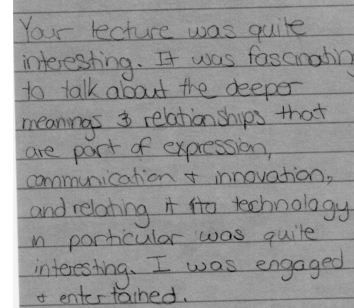 Your lecture was quite
interesting. It was fascinatin
to talk about the deeper
meanings & relationships that
are part of expression,
communication + innovation,
and relating it to technology
in particular was quite
interesting. I was engaged
+ entertained.